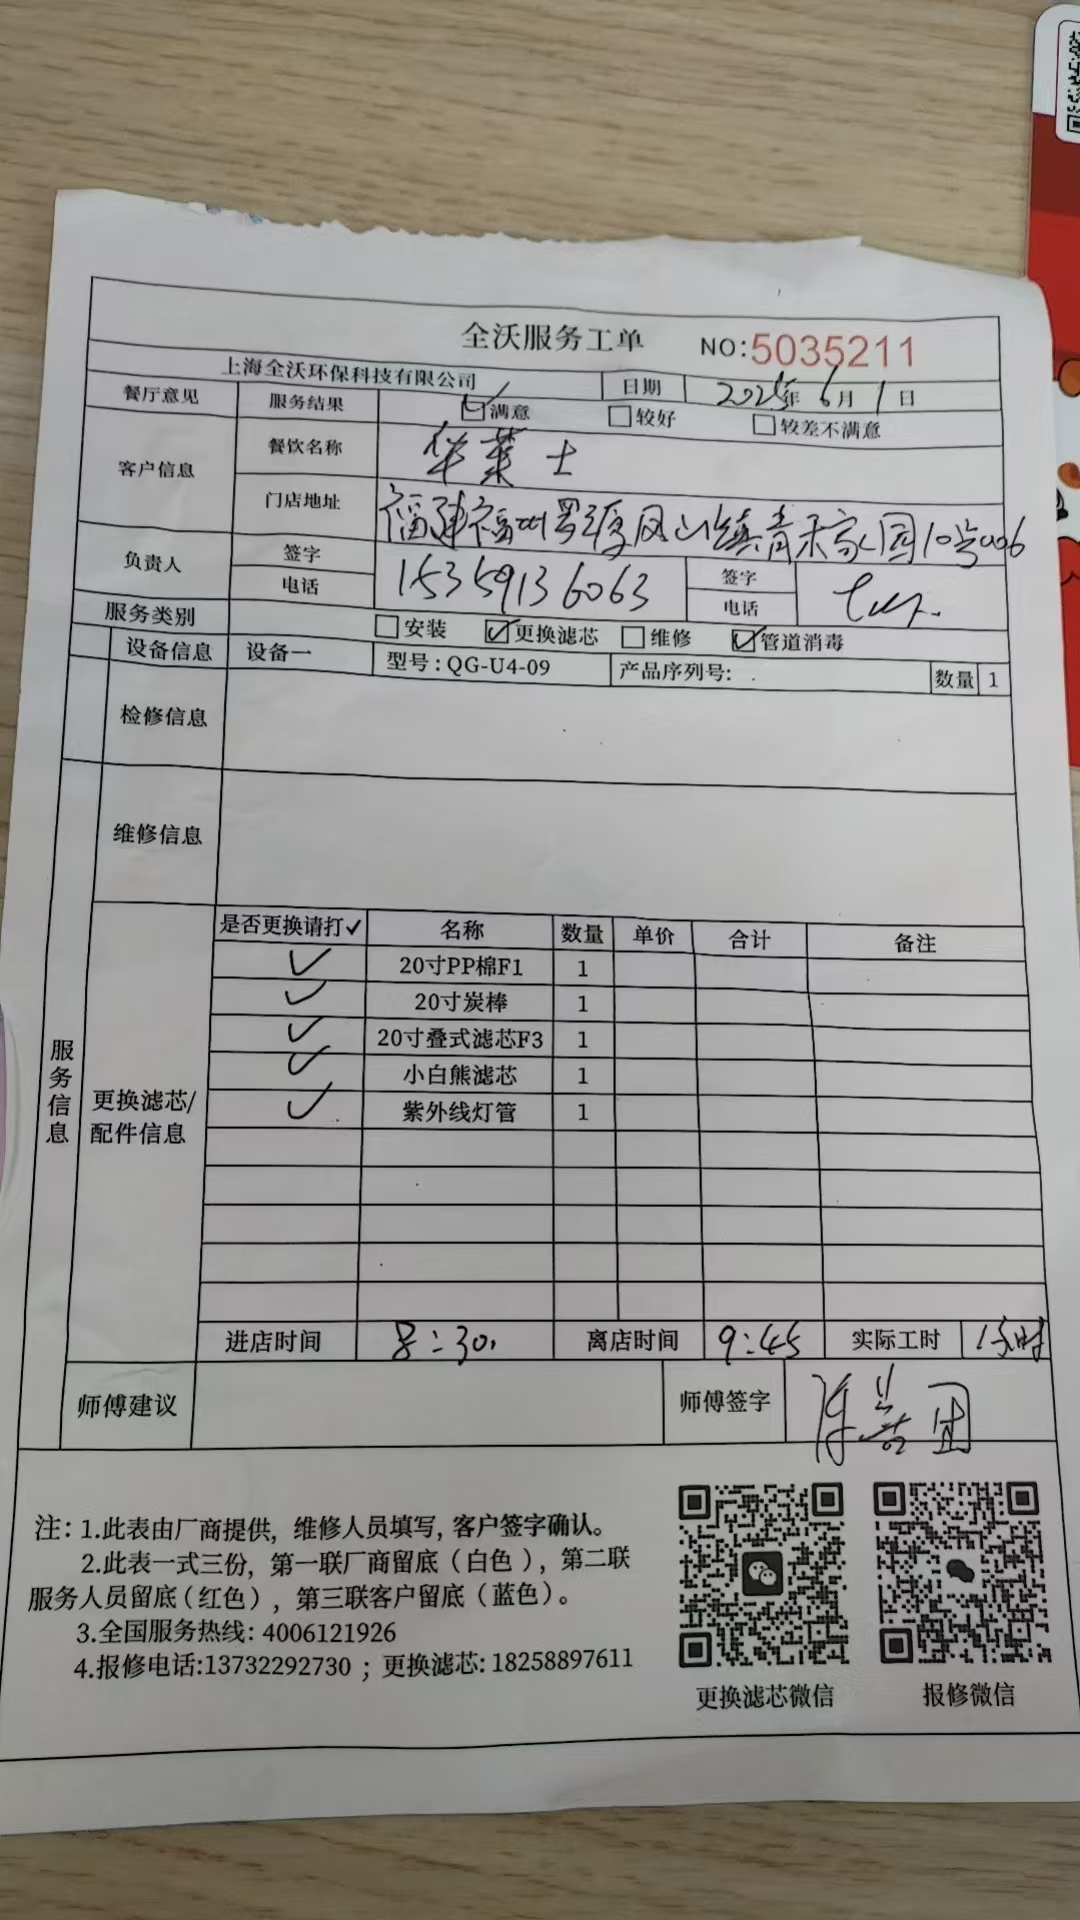 全沃服务工单 NO:5035211
上海全沃环保科技有限公司 日期 2025年6月1日
餐厅意见 服务结果 ☑满意 □较好 □较差不满意
客户信息 餐饮名称 华莱士
门店地址 福建福州罗源凤山镇青禾家园10号
负责人 签字 电话 15359136063 签字 电话
服务类别 □安装 ☑更换滤芯 □维修 ☑管道消毒
设备信息 设备一 型号:QG-U4-09 产品序列号: 数量 1
检修信息
维修信息
服务信息
更换滤芯/配件信息
是否更换请打✓ 名称 数量 单价 合计 备注
✓ 20寸PP棉F1 1
✓ 20寸炭棒 1
✓ 20寸叠式滤芯F3 1
✓ 小白熊滤芯 1
✓ 紫外线灯管 1
进店时间 8:30 离店时间 9:45 实际工时 1小时
师傅建议 师傅签字
注: 1.此表由厂商提供, 维修人员填写, 客户签字确认。
2.此表一式三份, 第一联厂商留底(白色), 第二联
服务人员留底(红色), 第三联客户留底(蓝色)。
3.全国服务热线: 4006121926
4.报修电话:13732292730 ; 更换滤芯: 18258897611
更换滤芯微信 报修微信